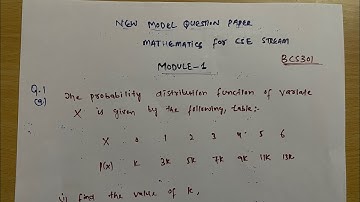 NEW MODEL QUESTION PAPER
MATHEMATICS for CSE STREAM
MODULE-1
BCS301
Q.1
(a) The probability distribution function of variate
X is given by the following table:-
X 0 1 2 3 4 5 6
P(X) K 3K 5K 7K 9K 11K 13K
i) find the value of K,